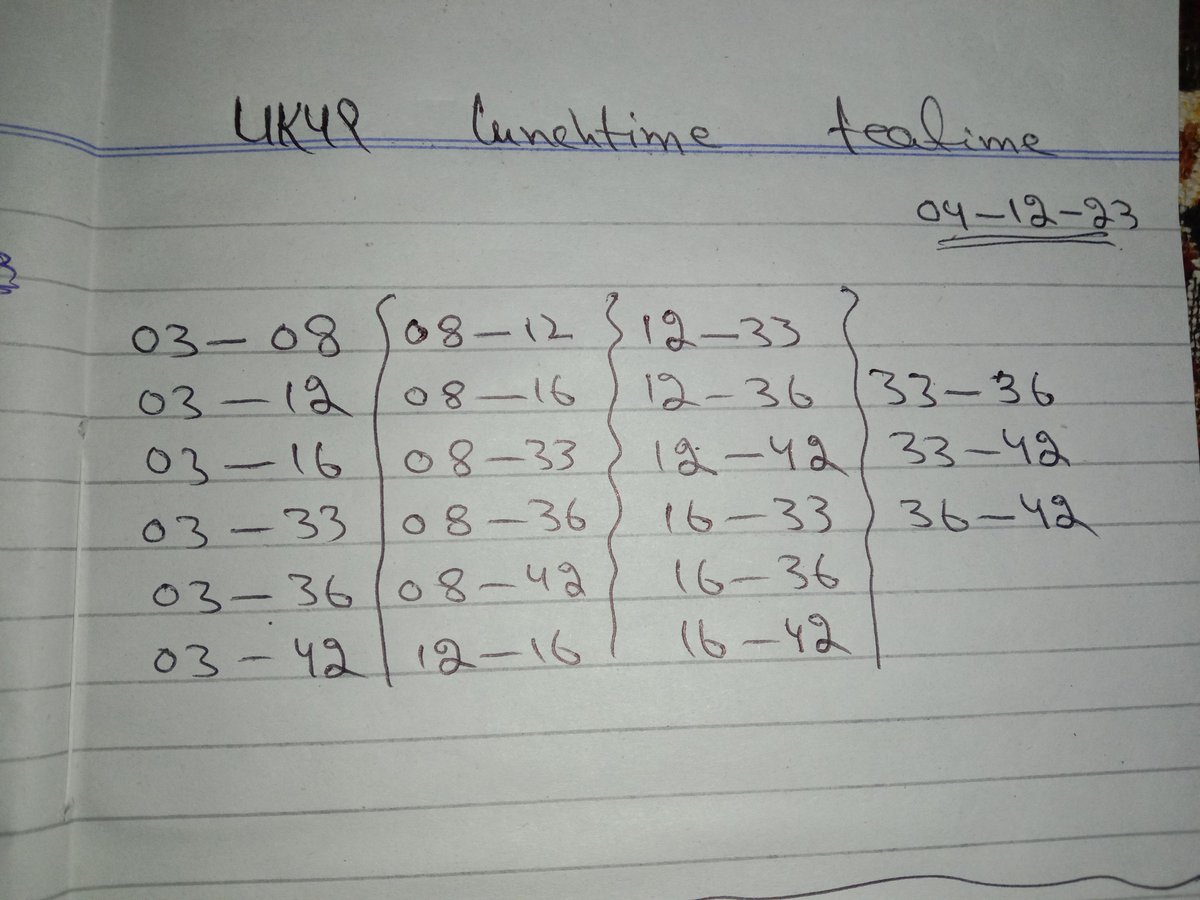 UK49 Lunchtime teatime
04-12-23
03-08 08-12 12-33
03-12 08-16 12-36 33-36
03-16 08-33 12-42 33-42
03-33 08-36 16-33 36-42
03-36 08-42 16-36
03-42 12-16 16-42